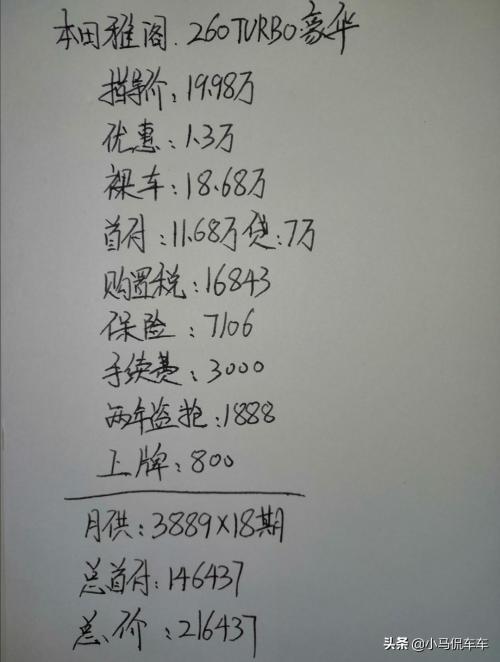 本田雅阁.260TURBO豪华
指导价:19.98万
优惠:1.3万
裸车:18.68万
首付:11.68万 贷:7万
购置税:16843
保险:7106
手续费:3000
两年盗抢:1888
上牌:800
月供:3889×18期
总首付:146437
总价:216437
头条 @小马侃车车